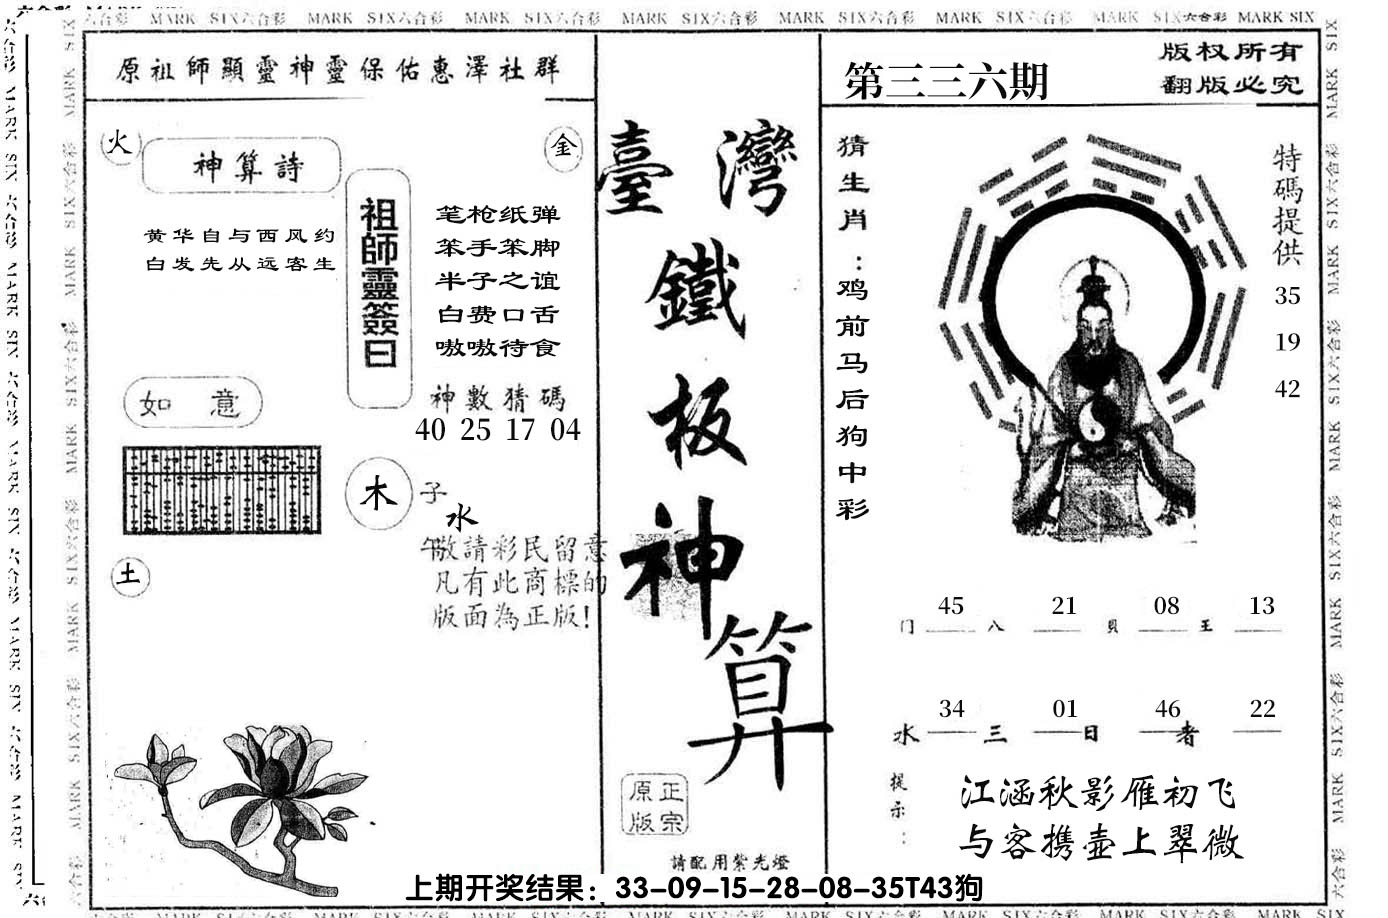 六合彩 MARK SIX六合彩 MARK SIX六合彩 MARK SIX六合彩 MARK SIX六合彩 MARK SIX六合彩 MARK SIX六合彩 MARK SIX六合彩 MARK SIX
原祖師顯靈神靈保佑惠澤社群
火
金
神算詩
黄华自与西风约
白发先从远客生
祖師靈簽曰
笔枪纸弹
笨手笨脚
半子之谊
白费口舌
嗷嗷待食
神數猜碼
40 25 17 04
如 意
木
子
水
午
土
敬請彩民留意
凡有此商標的
版面為正版!
臺灣
鐵
板
神
算
正宗
原版
請配用紫光燈
第三三六期
版权所有
翻版必究
猜生肖:鸡前马后狗中彩
特碼提供
35
19
42
45 21 08 13
门 八 貝 王
34 01 46 22
水 三 日 者
提示:
江涵秋影雁初飞
与客携壶上翠微
上期开奖结果：33-09-15-28-08-35T43狗